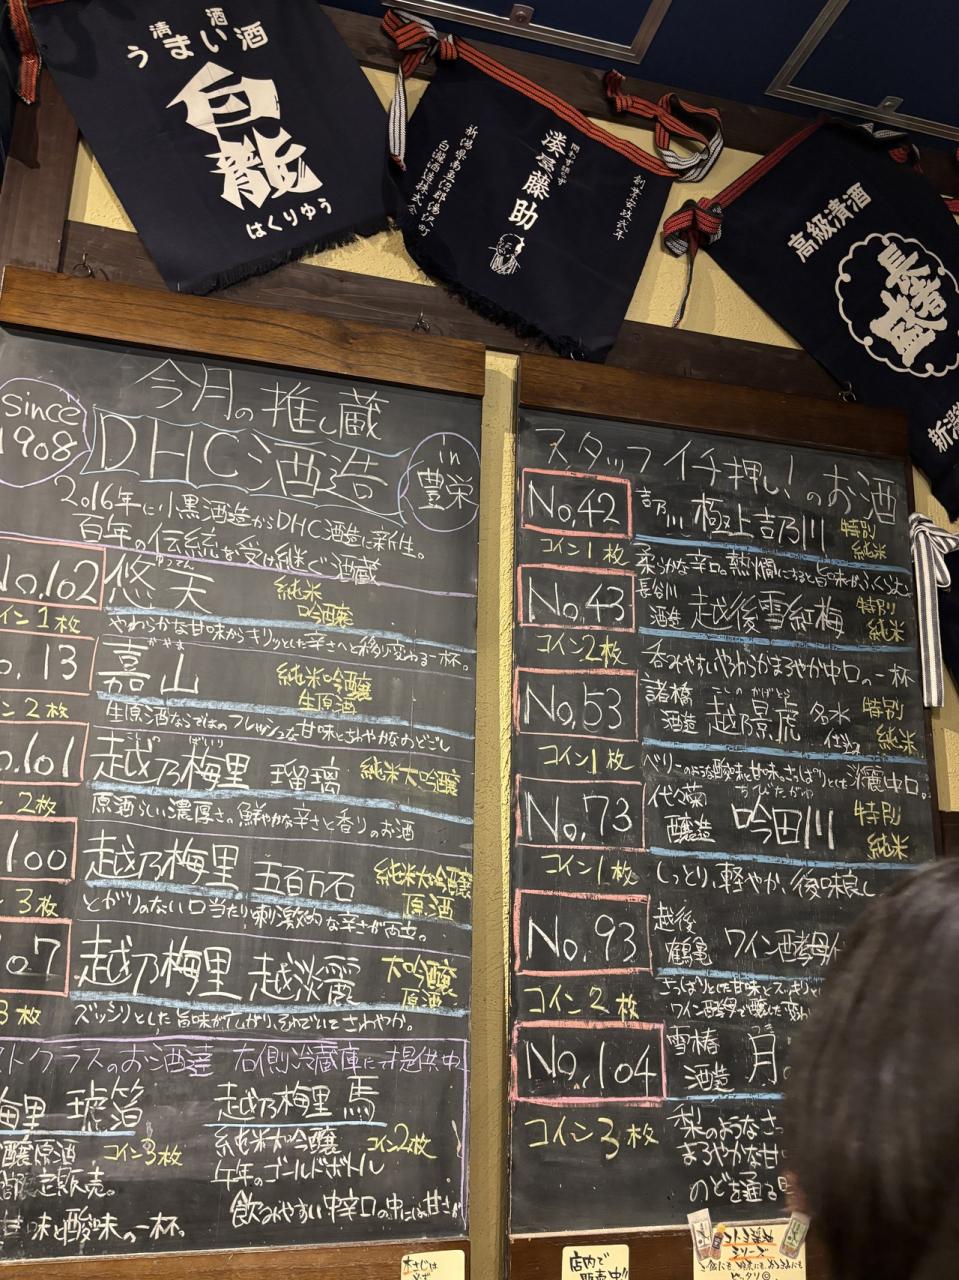 清酒
うまい酒
白龍
はくりゅう
湊屋藤助
創業安政弐年
新潟県南魚沼郡湯沢町
白瀧酒造株式会
高級清酒
長者盛
新潟
今月の推し蔵
since
1908
DHC酒造
in
豊栄
2016年に小黒酒造からDHC酒造に新生。
百年の伝統を受け継ぐ酒蔵
No.102
ゆうてん
悠天
純米
吟醸
コイン1枚
やわらかな甘味からきりっとした辛さへと移り変わる一杯。
13
かやま
嘉山
純米吟醸
生原酒
2枚
生原酒ならではのフレッシュな甘味とさわやかなのどごし
.101
こしの ばいり
越乃梅里 瑠璃 純米大吟醸
2枚
原酒らしい濃厚さ。鮮やかな辛さと香りのお酒
100
越乃梅里 五百万石 純米大吟醸
原酒
3枚
とがりのない口当たり、刺激的な辛さが
07
越乃梅里 越淡麗 大吟醸
原酒
3枚
ズッシリとした旨味が広がり、それでいてさわやか。
ストクラスのお酒達 右側冷蔵庫に提供中
梅里 琥珀
醸原酒 コイン3枚
定販売。
甘味と酸味の一杯。
越乃梅里 馬
純米大吟醸 コイン2枚
午年のゴールドボトル
飲みやすい中辛口の中には甘さが
スタッフイチ押し!のお酒
No.42
極上吉乃川 特別
純米
コイン1枚
柔らかな辛口。熱燗にすると旨味がふくらむ
No.43
長谷川
酒造 越後雪紅梅 特別
純米
コイン2枚
呑みやすい、やわらかまろやか中口の一杯
No.53
諸橋
酒造 こしの かげとら
越乃景虎 名水
仕込 特別
純米
コイン1枚
ベリーのような酸味と甘味。さっぱりとした淡麗中口。
No.73
代々菊
醸造 吟田川 特別
純米
ちびたがわ
コイン1枚
しっとり、軽やか、後味良し
No.93
越後
鶴亀 ワイン酵母仕
コイン2枚
さっぱりとした甘味とスッキリ
ワイン酵母で醸した
No.104
雪椿
酒造 月
コイン3枚
梨のようなさ
まろやかな甘
のどを通る
木さじは
店内で
販売中!!
シリーズ